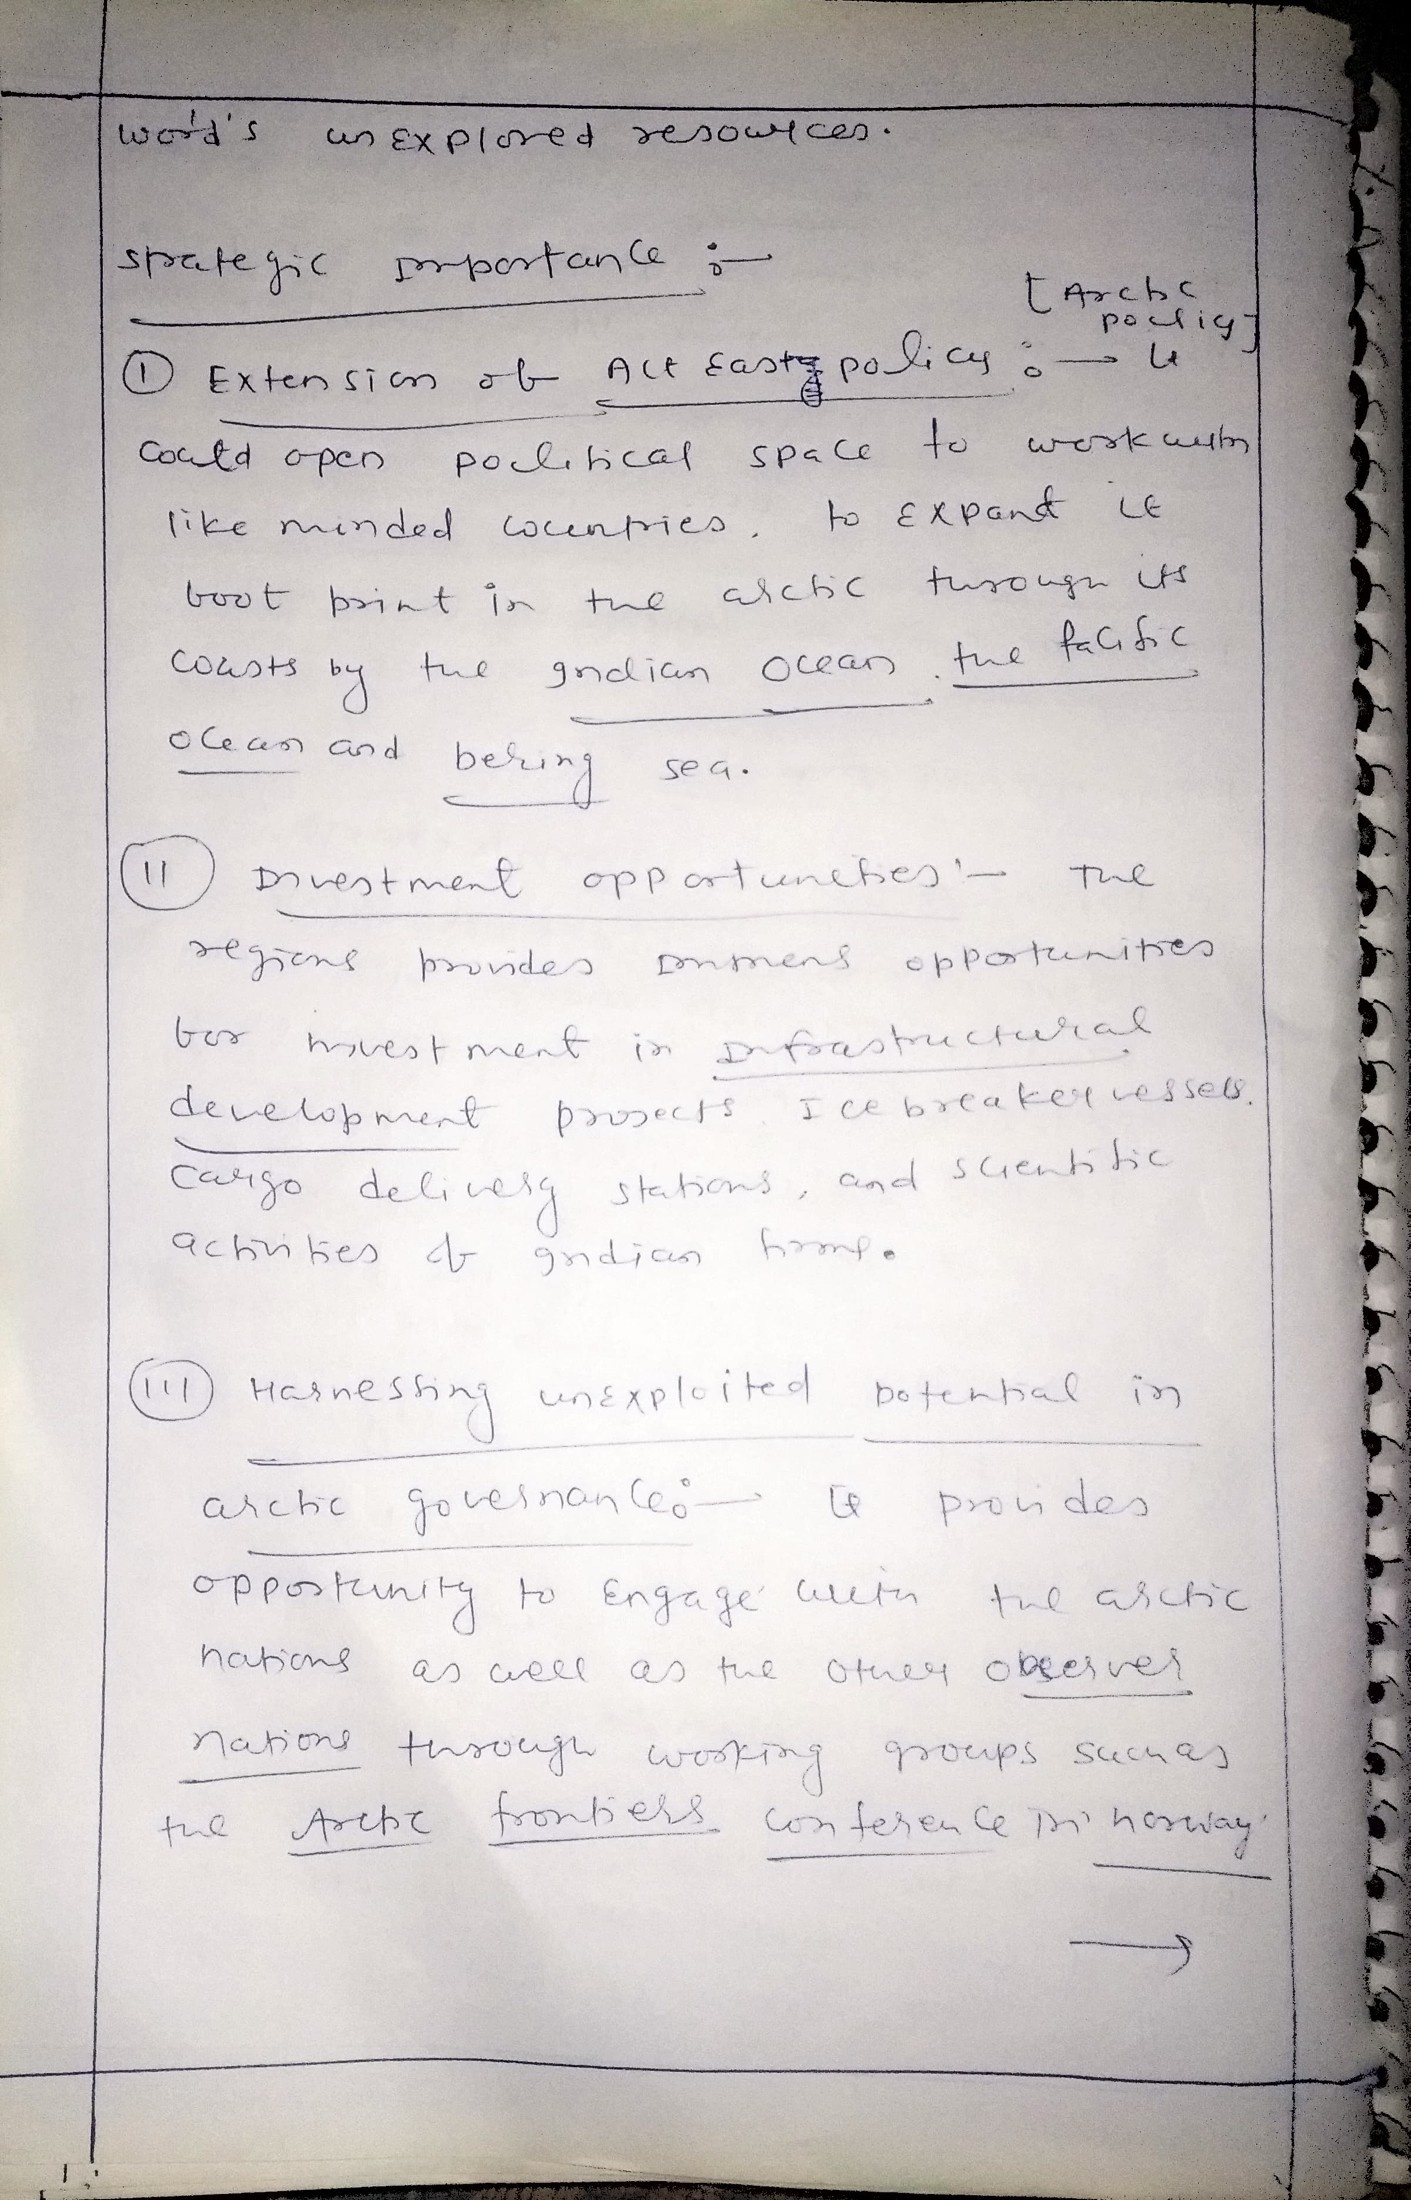 word's unexplored resources.
Strategic Importance :-
[Arctic
policy]
① Extension of Act East policy :- It
could open political space to work with
like minded countries, to expand it
foot print in the arctic through its
coasts by the Indian Ocean, the Pacific
Ocean and bering sea.
(II) Investment opportunities :- The
regions provides immens opportunities
for investment in infrastructural
development projects Ice breaker vessels,
cargo delivery stations, and scientific
activities of Indian firms.
(III) Harnessing unexploited potential in
arctic governance :- It provides
opportunity to Engage with the arctic
nations as well as the other observer
nations through working groups such as
the Arctic frontiers conference in norway.
→